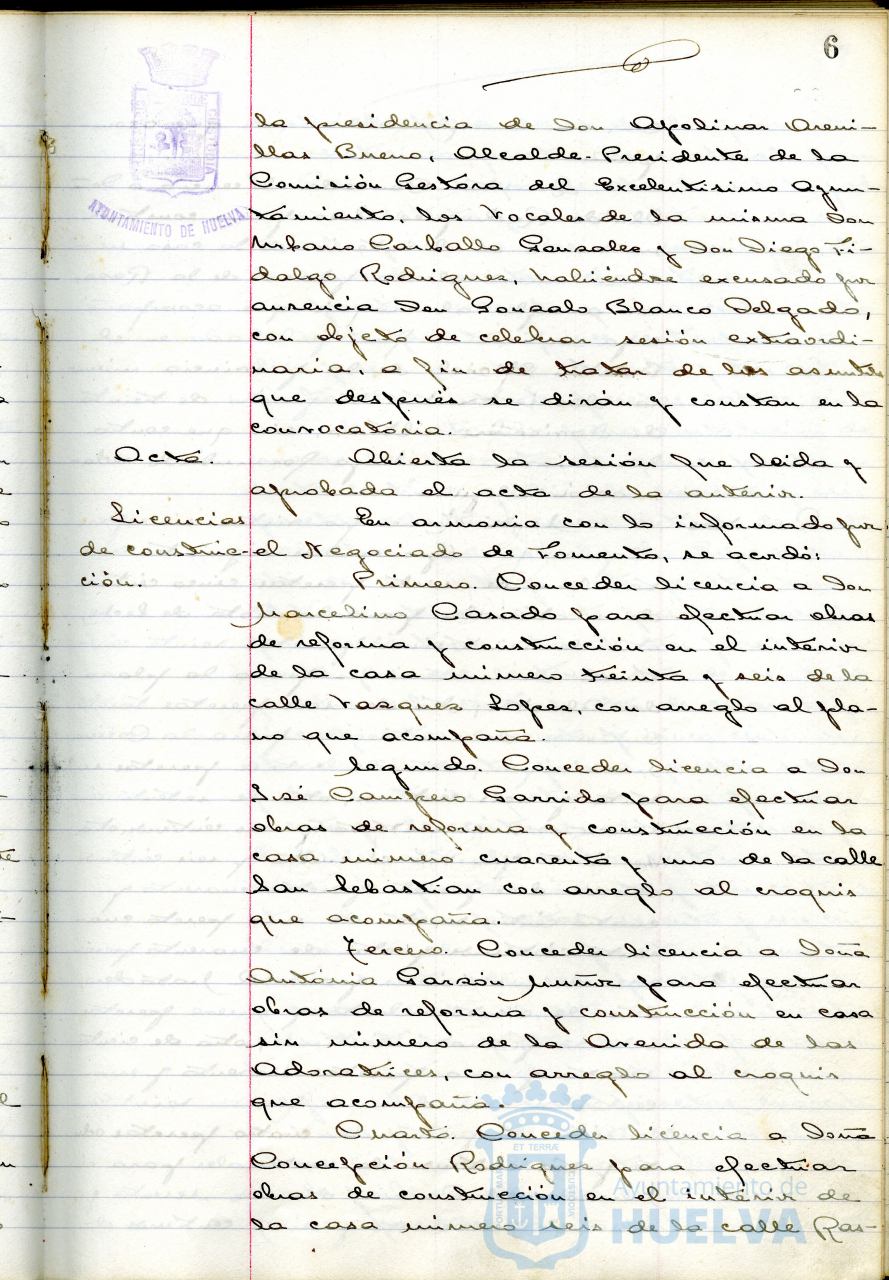 6
AYUNTAMIENTO DE HUELVA
la presidencia de Don Apolinar Areni-
llas Bueno, Alcalde-Presidente de la
Comisión Gestora del Excelentisimo Ayun-
tamiento, los Vocales de la misma Don
Urbano Carballo Gonzalez y Don Diego Fi-
dalgo Rodriguez, habiéndose excusado por
ausencia Don Gonzalo Blanco Delgado,
con objeto de celebrar sesión extraordi-
naria, a fin de tratar de los asuntos
que después se dirán y constan en la
convocatoria.
Acta.
Abierta la sesión fue leida y
aprobada el acta de la anterior.
Licencias
de construc-
ción.
En armonia con lo informado por
el Negociado de Fomento, se acordó:
Primero. Conceder licencia a Don
Marcelino Casado para efectuar obras
de reforma y construcción en el interior
de la casa número treinta y seis de la
calle Vazquez Lopez, con arreglo al pla-
no que acompaña.
Segundo. Conceder licencia a Don
José Campero Garrido para efectuar
obras de reforma y construcción en la
casa número cuarenta y uno de la calle
San Sebastian con arreglo al croquis
que acompaña.
Tercero. Conceder licencia a Doña
Antonia Garzón Muñoz para efectuar
obras de reforma y construcción en casa
sin número de la Avenida de las
Adoratrices, con arreglo al croquis
que acompaña.
Cuarto. Conceder licencia a Doña
Concepción Rodriguez para efectuar
obras de construcción en el interior de
la casa número seis de la calle Ras-
ET TERRÆ
Ayuntamiento de
HUELVA